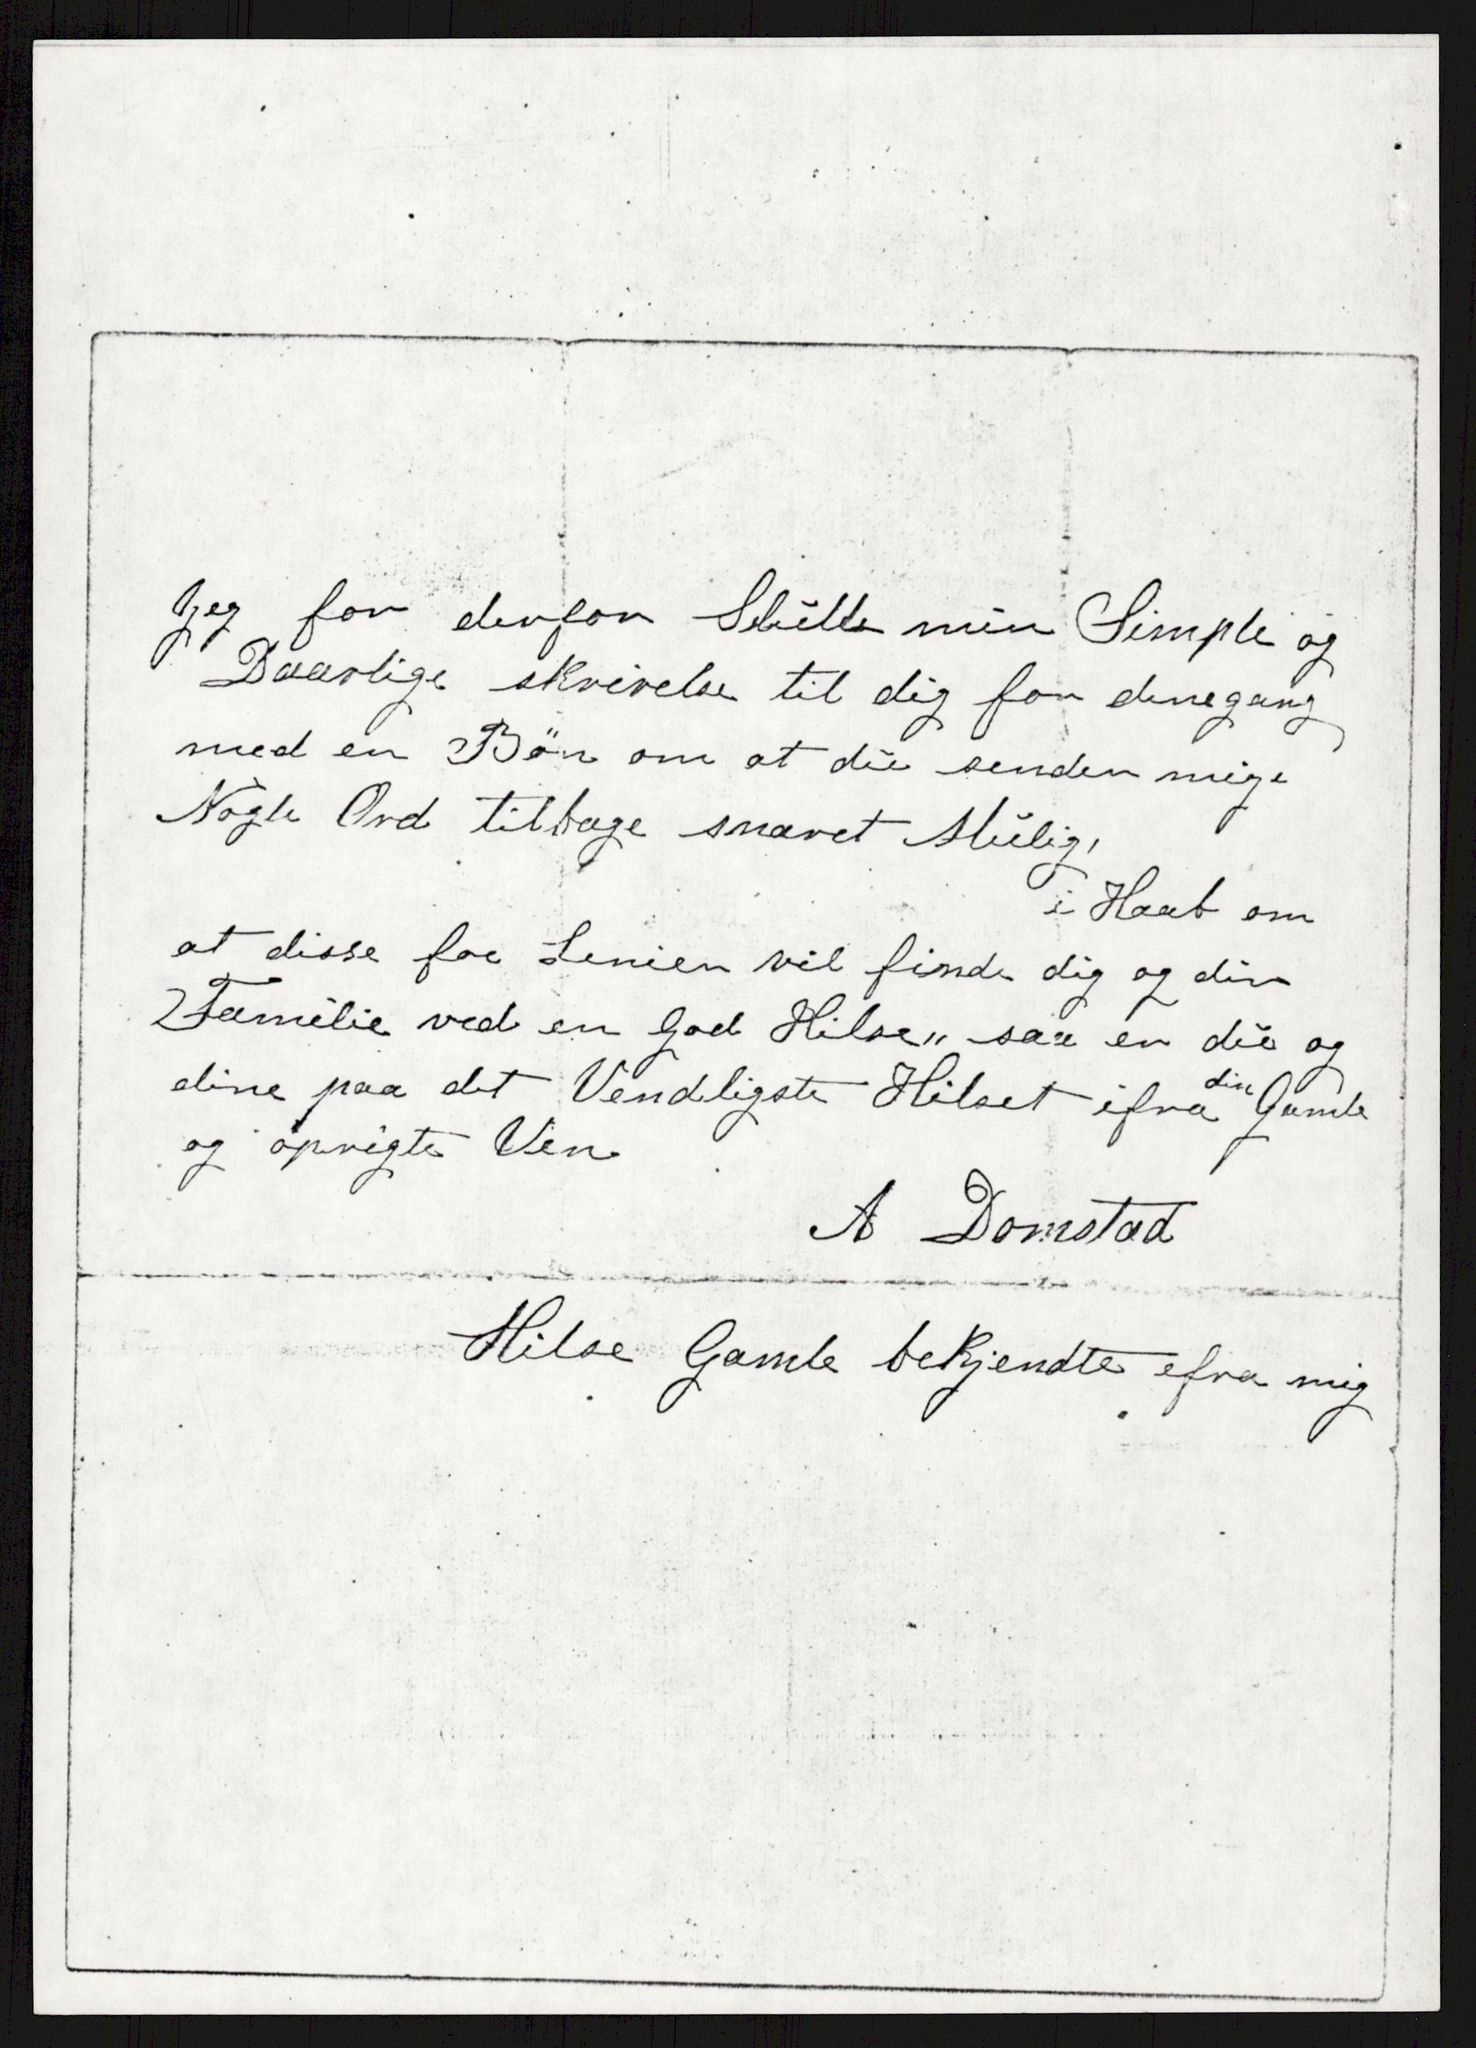 Jeg for derfor Slütte min Simple og
Daarlige skrivelse til dig for denegang
med en Bön om at dü sender mige
Nogle Ord tilbage snaret Mülig,
i Haab om
at disse foe Linier vil finde dig og din
Familie ved en God Hilse„ saa er dü og
dine paa det Vendligste Hilset ifra din Gamle
og oprigte Ven
A Domstad
Hilse Gamle bekjendte efra mig